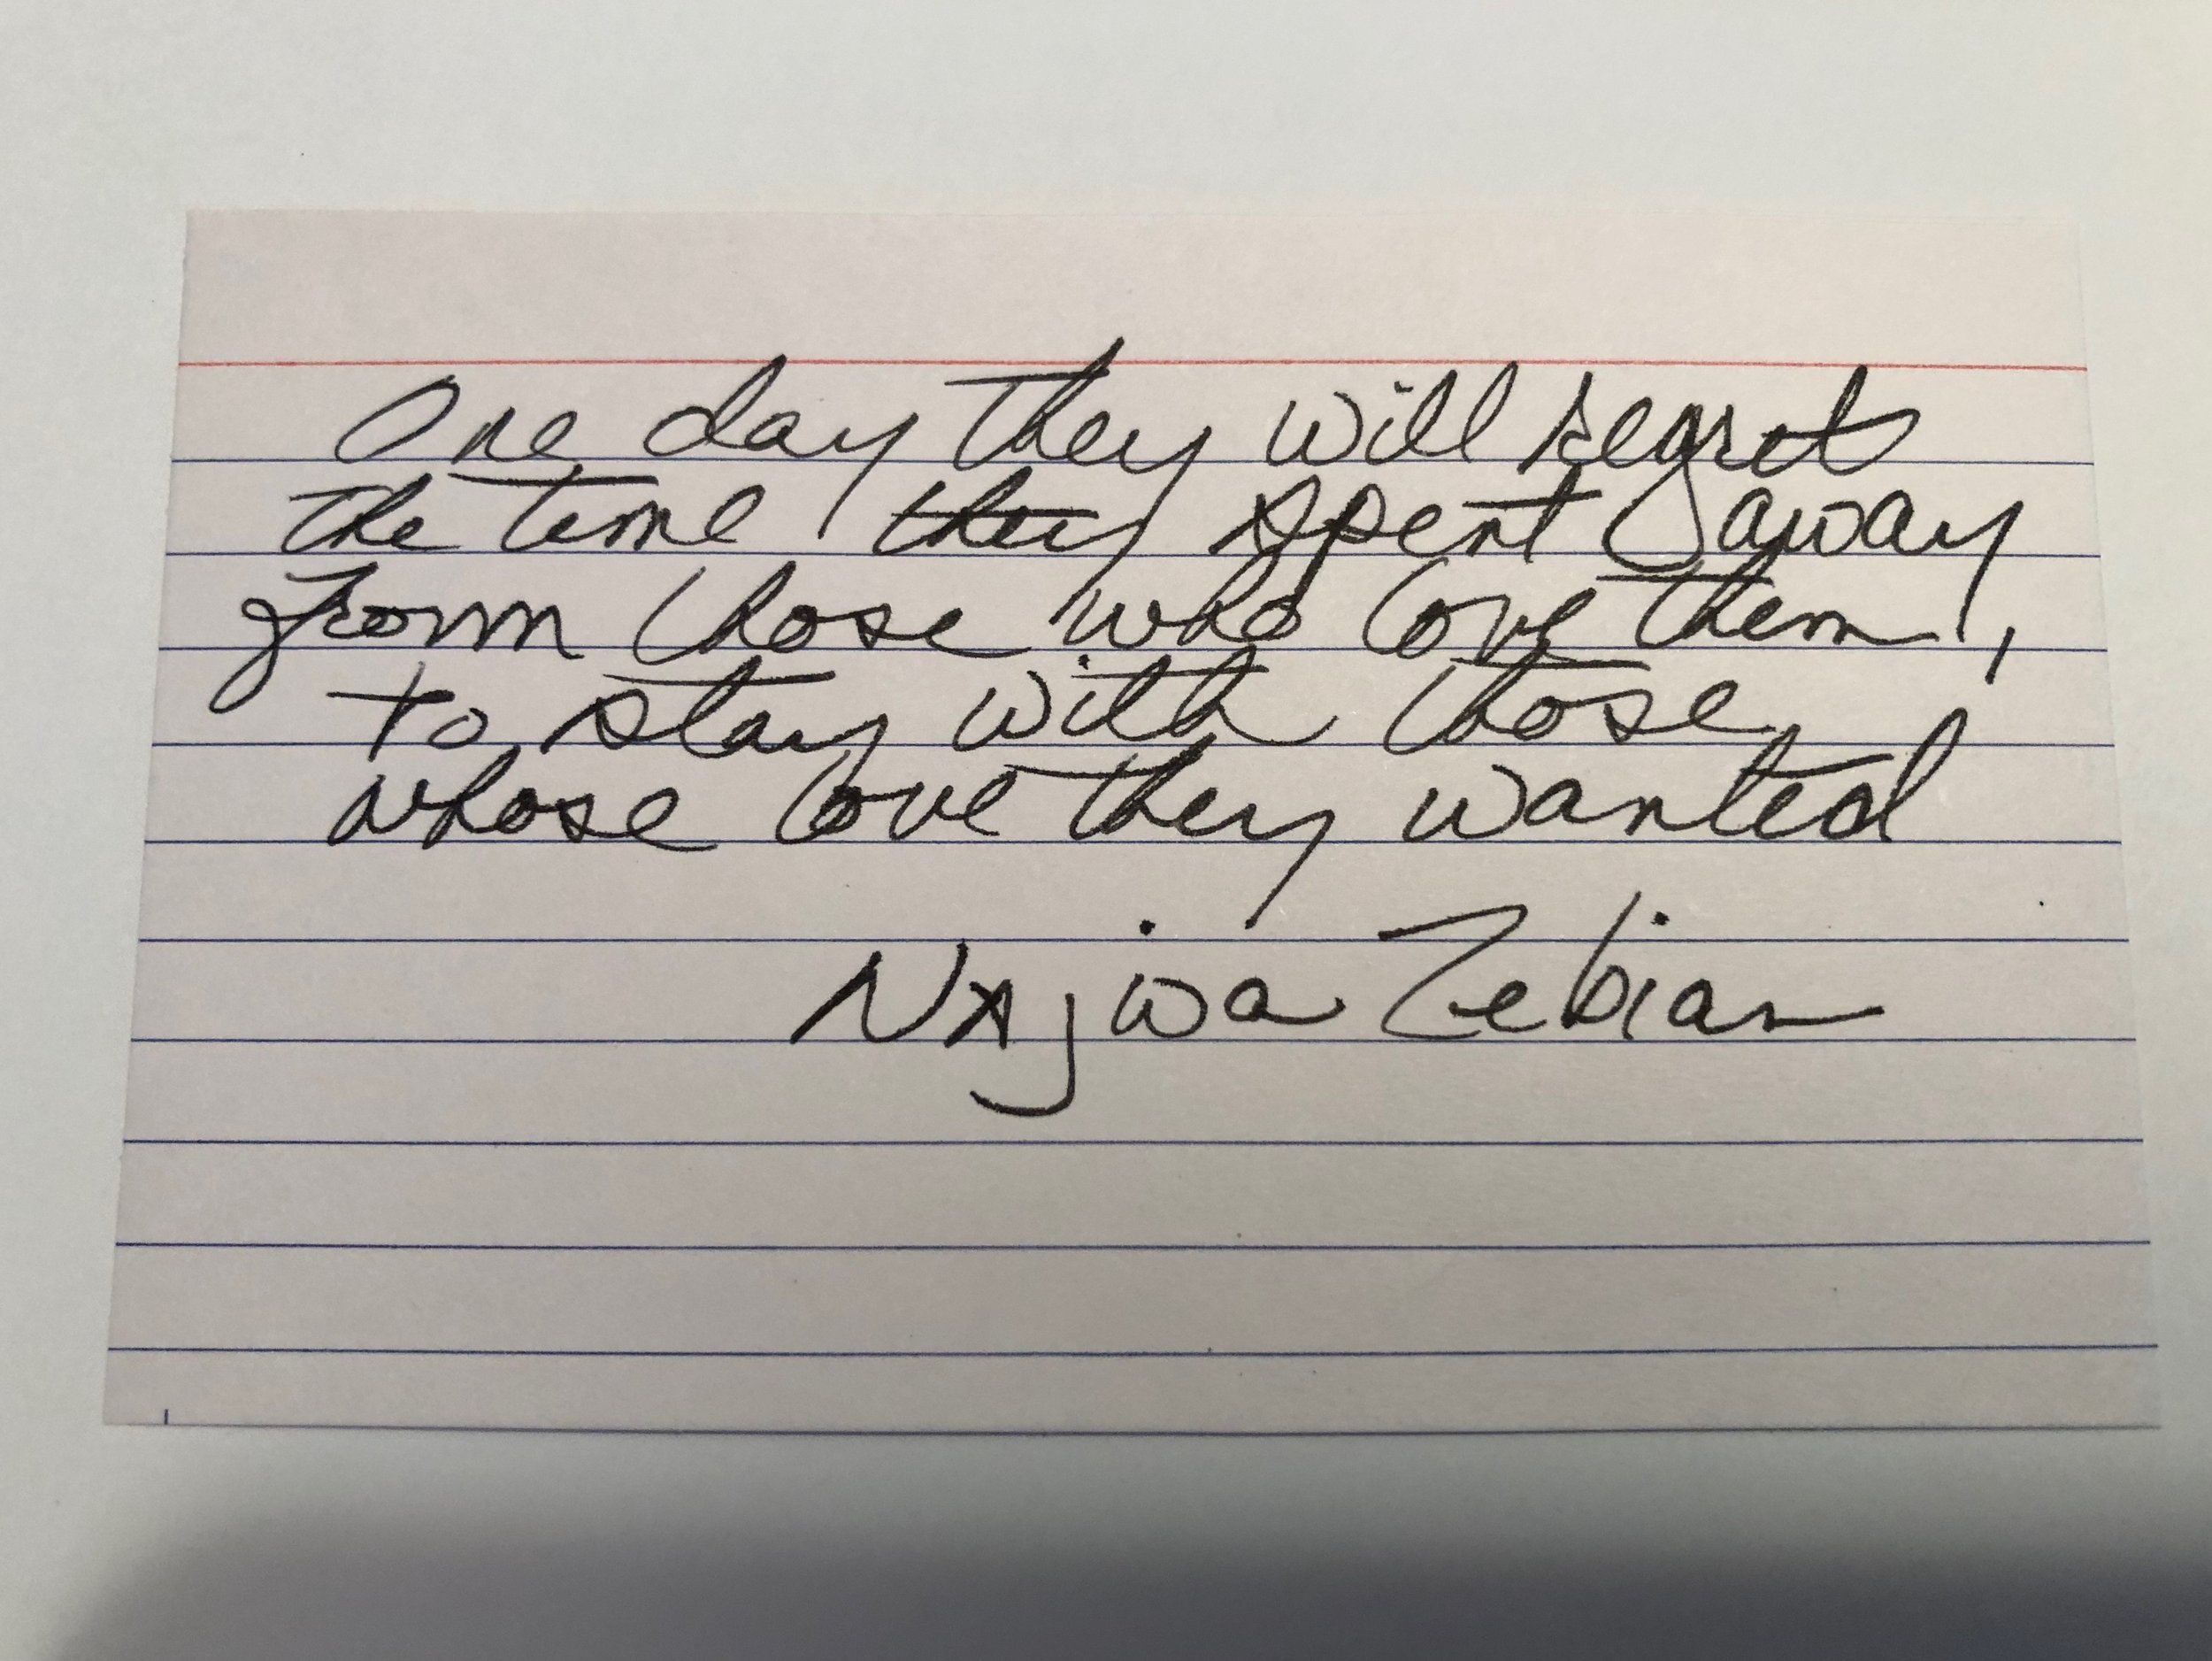 One day they will regret
the time they spent away
from those who love them,
to stay with those
whose love they wanted
Najwa Zebian